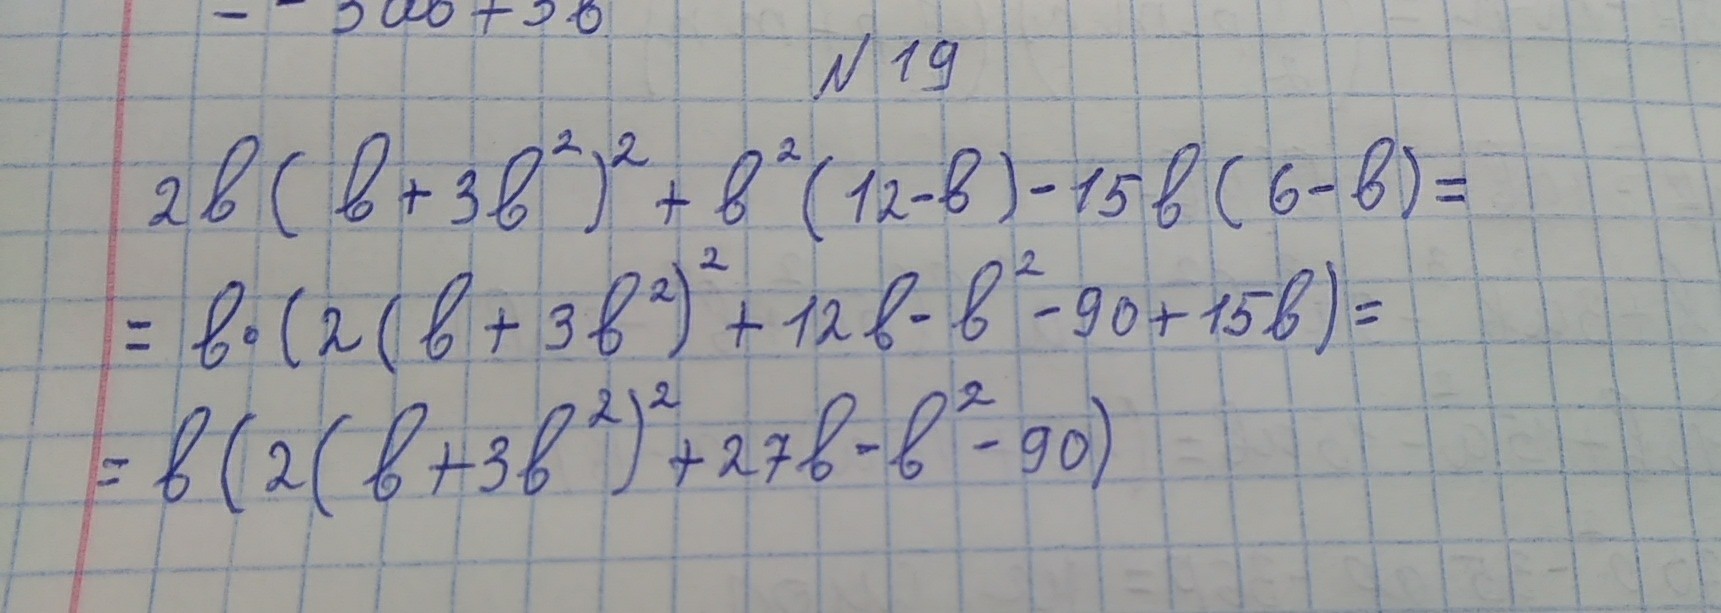 = - 3ab + 3b
N 19
2b(b+3b²)² + b²(12-b) - 15b(6-b) =
= b·(2(b+3b²)² + 12b - b² - 90 + 15b) =
= b(2(b+3b²)² + 27b - b² - 90)